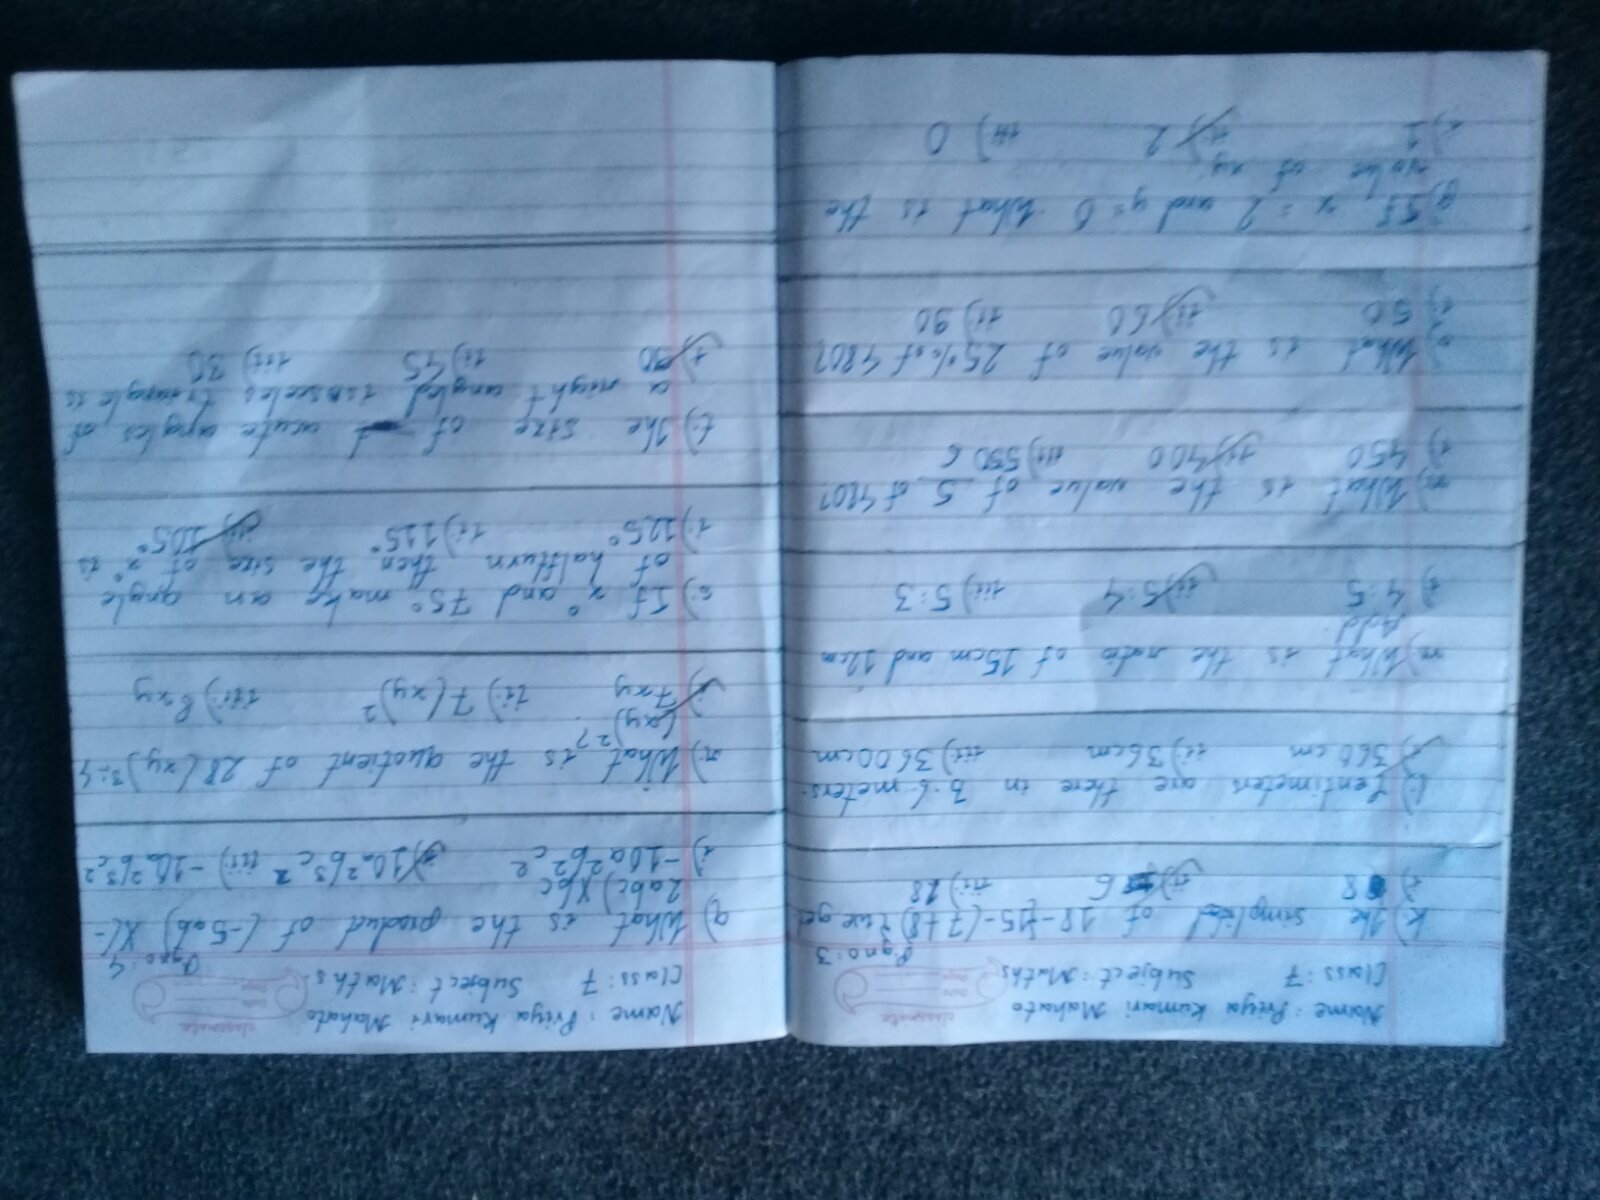 Name : Priya Kumari Mahato
Class : 7 Subject : Maths
Pgno : 3
k) The simplified of 18-{15-(7+8)} we get
i) 8 ii) 6 iii) 18
l) Centimeters are there in 3.6 meters.
i) 360 cm ii) 36cm iii) 3600cm
m) What is the ratio of 15cm and 12cm
Add
i) 4:5 ii) 5:4 iii) 5:3
n) What is the value of 5 of 480?
i) 450 ii) 400 iii) 550
o) What is the value of 25% of 480?
i) 50 ii) 60 iii) 90
If x = 2 and y = 0 What is the
value of xy
i) 1 ii) 2 iii) 0
Name : Priya Kumari Mahato
Class : 7 Subject : Maths
Pgno : 4
q) What is the product of (-5ab) X(-
2abc) Xbc
i) -10a²b²c² ii) 10a²b³c² iii) -10a²b³c²
r) What is the quotient of 28(xy)³÷4
(xy)²?
i) 7xy ii) 7(xy)² iii) 8xy
s) If x° and 75° make an angle
of halfturn then the size of x° is
i) 125° ii) 115° iii) 105°
t) The size of acute angles of
a right angled isosceles triangle is
i) 90 ii) 45 iii) 30